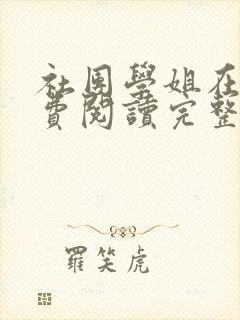 社团學姐在
費閱讀完整
羅笑虎